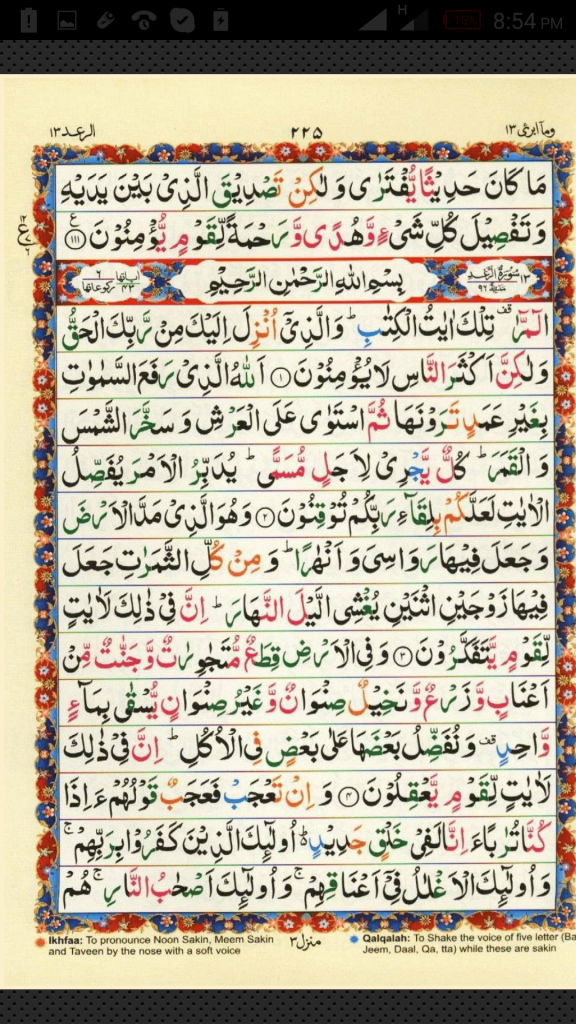 H 15% 8:54 PM
الرعد ١٣ ٢٢٥ ومآ ابرئ ١٣
مَا كَانَ حَدِيْثًا يُّفْتَرٰى وَ لٰكِنْ تَصْدِيْقَ الَّذِىْ بَيْنَ يَدَيْهِ
وَ تَفْصِيْلَ كُلِّ شَىْءٍ وَّ هُدًى وَّ رَحْمَةً لِّقَوْمٍ يُّؤْمِنُوْنَ ۝۱۱۱ ع
١٢ ع ٦
١٣ سُوْرَةُ الرَّعْدِ مَدَنِيَّةٌ ٩٦ بِسْمِ اللهِ الرَّحْمٰنِ الرَّحِيْمِ اٰيَاتُهَا ٤٣ رُكُوْعَاتُهَا ٦
الٓمّٓرٰ ۚقف تِلْكَ اٰيٰتُ الْكِتٰبِ ؕ وَ الَّذِىْۤ اُنْزِلَ اِلَيْكَ مِنْ رَّبِّكَ الْحَقُّ
وَ لٰكِنَّ اَكْثَرَ النَّاسِ لَا يُؤْمِنُوْنَ ۝۱ اَللهُ الَّذِىْ رَفَعَ السَّمٰوٰتِ
بِغَيْرِ عَمَدٍ تَرَوْنَهَا ثُمَّ اسْتَوٰى عَلَى الْعَرْشِ وَ سَخَّرَ الشَّمْسَ
وَ الْقَمَرَ ؕ كُلٌّ يَّجْرِىْ لِاَجَلٍ مُّسَمًّى ؕ يُدَبِّرُ الْاَمْرَ يُفَصِّلُ
الْاٰيٰتِ لَعَلَّكُمْ بِلِقَآءِ رَبِّكُمْ تُوْقِنُوْنَ ۝۲ وَ هُوَ الَّذِىْ مَدَّ الْاَرْضَ
وَ جَعَلَ فِيْهَا رَوَاسِىَ وَ اَنْهٰرًا ؕ وَ مِنْ كُلِّ الثَّمَرٰتِ جَعَلَ
فِيْهَا زَوْجَيْنِ اثْنَيْنِ يُغْشِى الَّيْلَ النَّهَارَ ؕ اِنَّ فِىْ ذٰلِكَ لَاٰيٰتٍ
لِّقَوْمٍ يَّتَفَكَّرُوْنَ ۝۳ وَ فِى الْاَرْضِ قِطَعٌ مُّتَجٰوِرٰتٌ وَّ جَنّٰتٌ مِّنْ
اَعْنَابٍ وَّ زَرْعٌ وَّ نَخِيْلٌ صِنْوَانٌ وَّ غَيْرُ صِنْوَانٍ يُّسْقٰى بِمَآءٍ
وَّاحِدٍ ۚقف وَ نُفَضِّلُ بَعْضَهَا عَلٰى بَعْضٍ فِى الْاُكُلِ ؕ اِنَّ فِىْ ذٰلِكَ
لَاٰيٰتٍ لِّقَوْمٍ يَّعْقِلُوْنَ ۝۴ وَ اِنْ تَعْجَبْ فَعَجَبٌ قَوْلُهُمْ ءَاِذَا
كُنَّا تُرٰبًا ءَاِنَّا لَفِىْ خَلْقٍ جَدِيْدٍ ۬ؕ اُولٰٓئِكَ الَّذِيْنَ كَفَرُوْا بِرَبِّهِمْ ۚ
وَ اُولٰٓئِكَ الْاَغْلٰلُ فِىْۤ اَعْنَاقِهِمْ ۚ وَ اُولٰٓئِكَ اَصْحٰبُ النَّارِ ۚ هُمْ
Ikhfaa: To pronounce Noon Sakin, Meem Sakin
and Taveen by the nose with a soft voice
منزل ٣
Qalqalah: To Shake the voice of five letter (Ba
Jeem, Daal, Qa, tta) while these are sakin